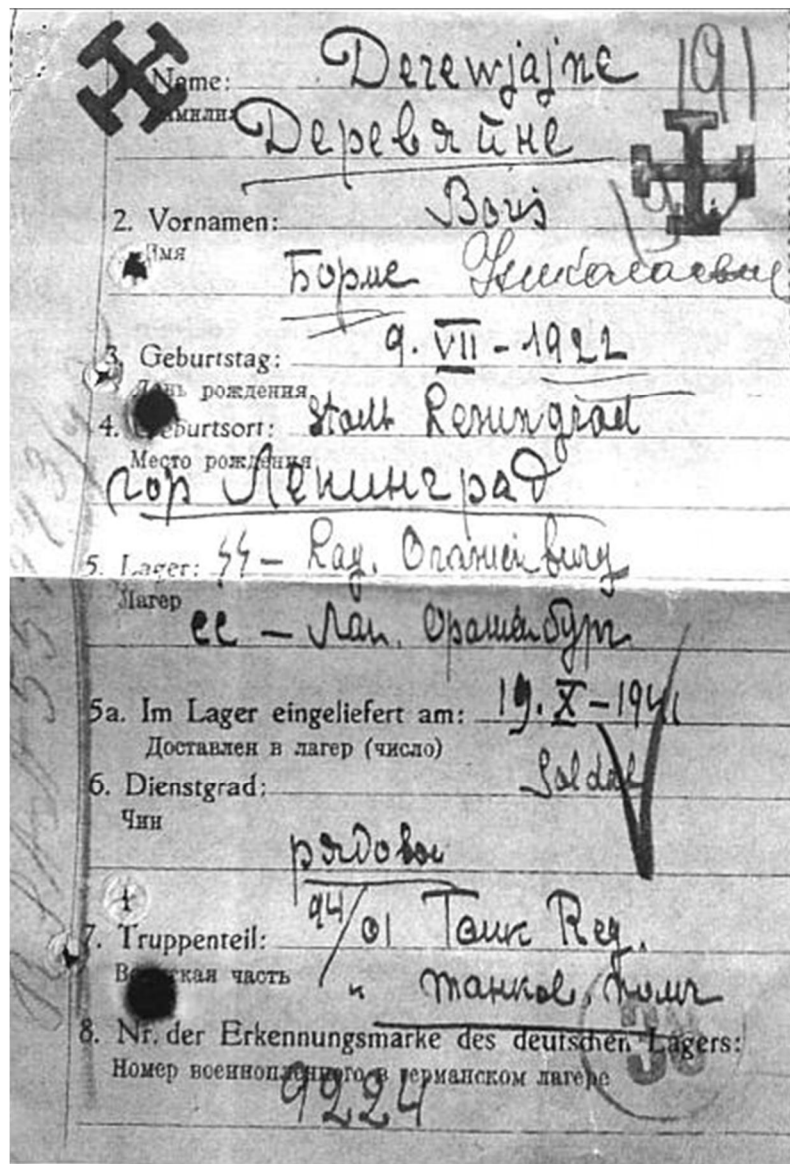 Name: Derewjajne
Фамилия Деревяйне
191
2. Vornamen: Boris
Имя
Борис Николаевич
3. Geburtstag: 9. VII - 1922
День рождения
4. Geburtsort: Stadt Leningrad
Место рождения
гор Ленинград
5. Lager: SS - Lag. Oranienburg
Лагер
СС - Лаг. Ораниенбург
5a. Im Lager eingeliefert am: 19. X - 1941
Доставлен в лагер (число)
6. Dienstgrad: Soldat
Чин
рядовой
7. Truppenteil: 94/01 Tank Reg.
Воинская часть " танков, полк
8. Nr. der Erkennungsmarke des deutschen Lagers:
Номер военнопленного в германском лагере
9224
36